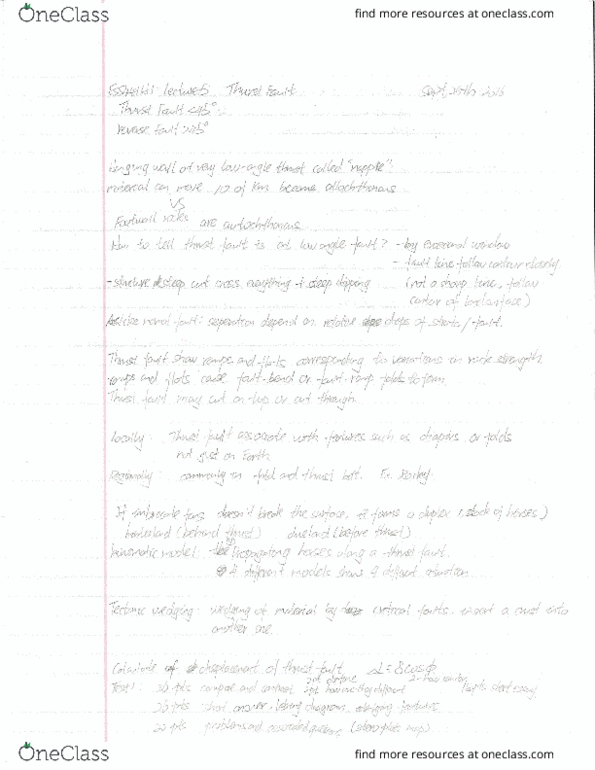 OneClass
find more resources at oneclass.com
lecture5 Thurst Fault Sept 2016
Thurst Fault <45°
reverse fault >45°
hanging wall of very low-angle thrust called "nappe".
material can move 10 of km become allochthonous
VS
Footwall rocks are autochthonous
How to tell thrust fault is at low angle fault? - by erosional window
- fault line follow contour closely
- structure steep cut cross everything → deep dipping (not a sharp line, follow
contour of land surface)
besides normal fault: separation depend on relative dips of strata / fault.
Thrust fault show ramps and flats corresponding to variations in rock strength
ramps and flats cause fault-bend or fault-ramp folds to form
Thrust fault may cut on top or cut through
Locally: Thrust fault associate with features such as diapirs or folds
not just on Earth
Regionally: commonly in fold and thrust belt. Rocky
If imbricate fans doesn't break the surface, it forms a duplex (stack of horses)
hinterland (behind thrust) foreland (before thrust)
kinematic model: the propagating horses along a thrust fault.
4 different models show 4 different
Tectonic wedging: wedging of material by critical faults. insert a crust into
another one.
Calculate of displacement of thrust fault
Test1: 30 pts compare and contrast
pts short answer - labeling diagram,
pts problems and associated questions (stereoplots, map)
OneClass
find more resources at oneclass.com